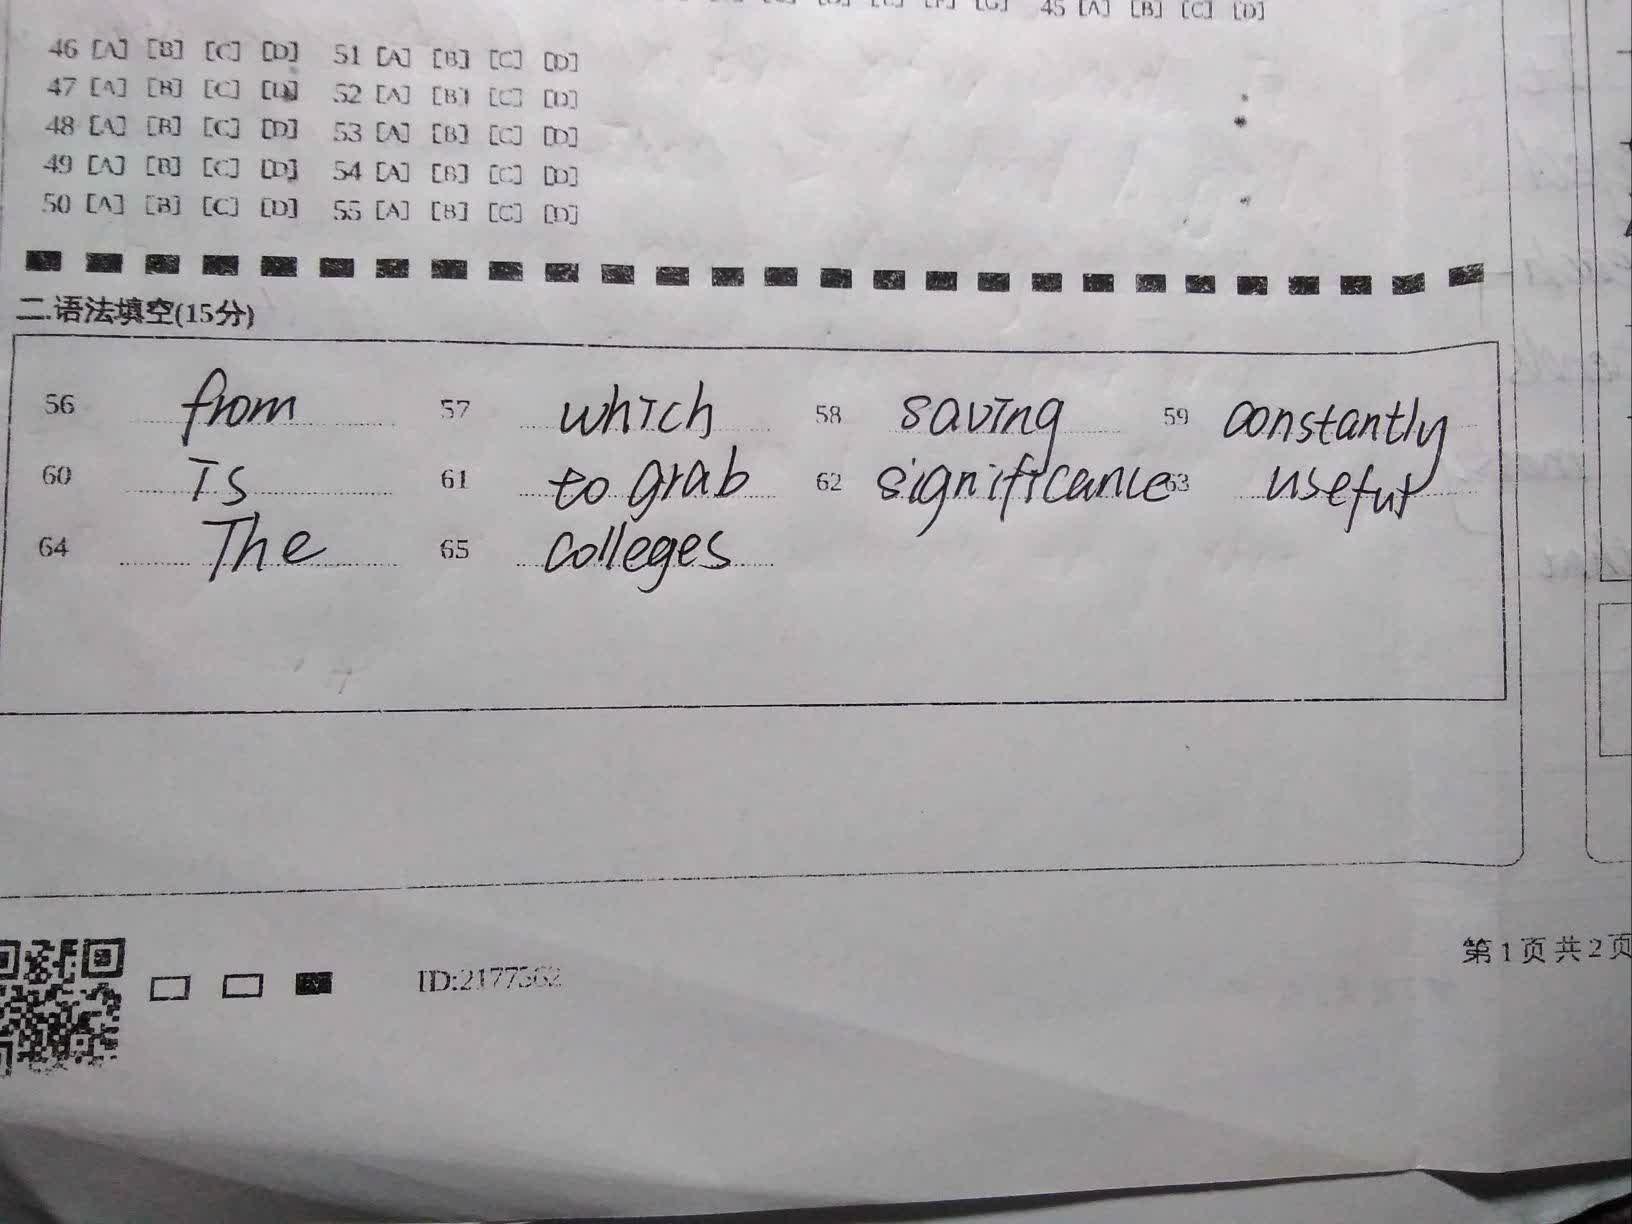 45 [A] [B] [C] [D]
46 [A] [B] [C] [D] 51 [A] [B] [C] [D]
47 [A] [B] [C] [D] 52 [A] [B] [C] [D]
48 [A] [B] [C] [D] 53 [A] [B] [C] [D]
49 [A] [B] [C] [D] 54 [A] [B] [C] [D]
50 [A] [B] [C] [D] 55 [A] [B] [C] [D]
二.语法填空(15分)
56 from 57 which 58 saving 59 constantly
60 is 61 to grab 62 significance 63 useful
64 The 65 colleges
ID:2177562
第1页共2页